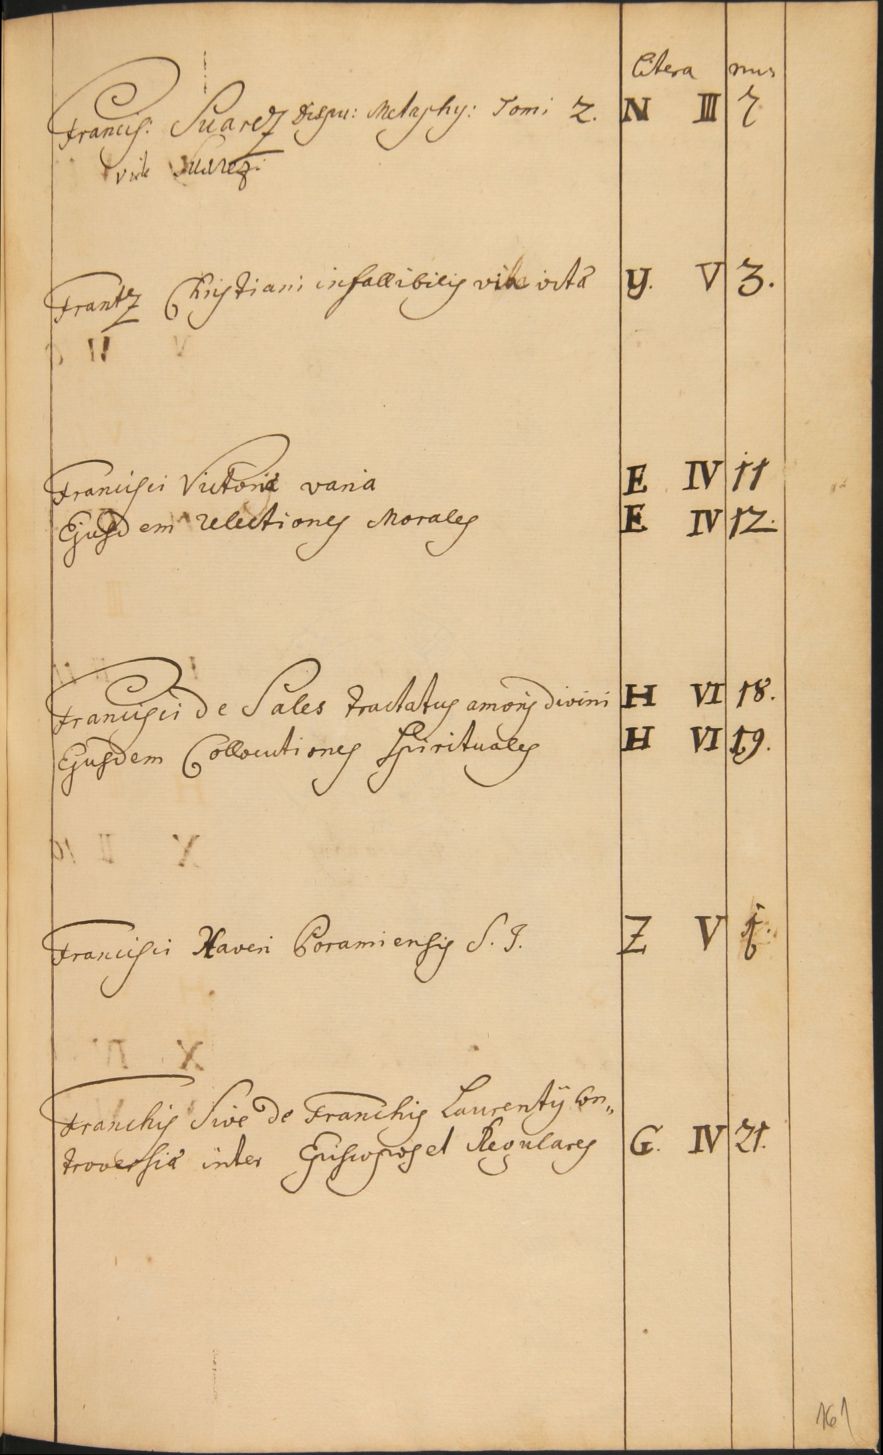 Litera nus
Francis: Suarez Dispu: Metaphy: Tomi 2. N III 7
vide Suarezi
Frantz Christiani infallibilis vitæ y. V 3.
Francisci Victoriæ varia E IV 11
Ejusdem relectiones Morales E IV 12.
Francisci de Sales tractatus amoris divini H VI 18.
Ejusdem Collocutiones Spirituales H VI 19.
Francisci Xaveri Coramiensis S. J. Z V
Franchis Sive de Franchis Laurentÿ Con„
troversiæ inter Episcopos et Regulares G. IV 21.
161